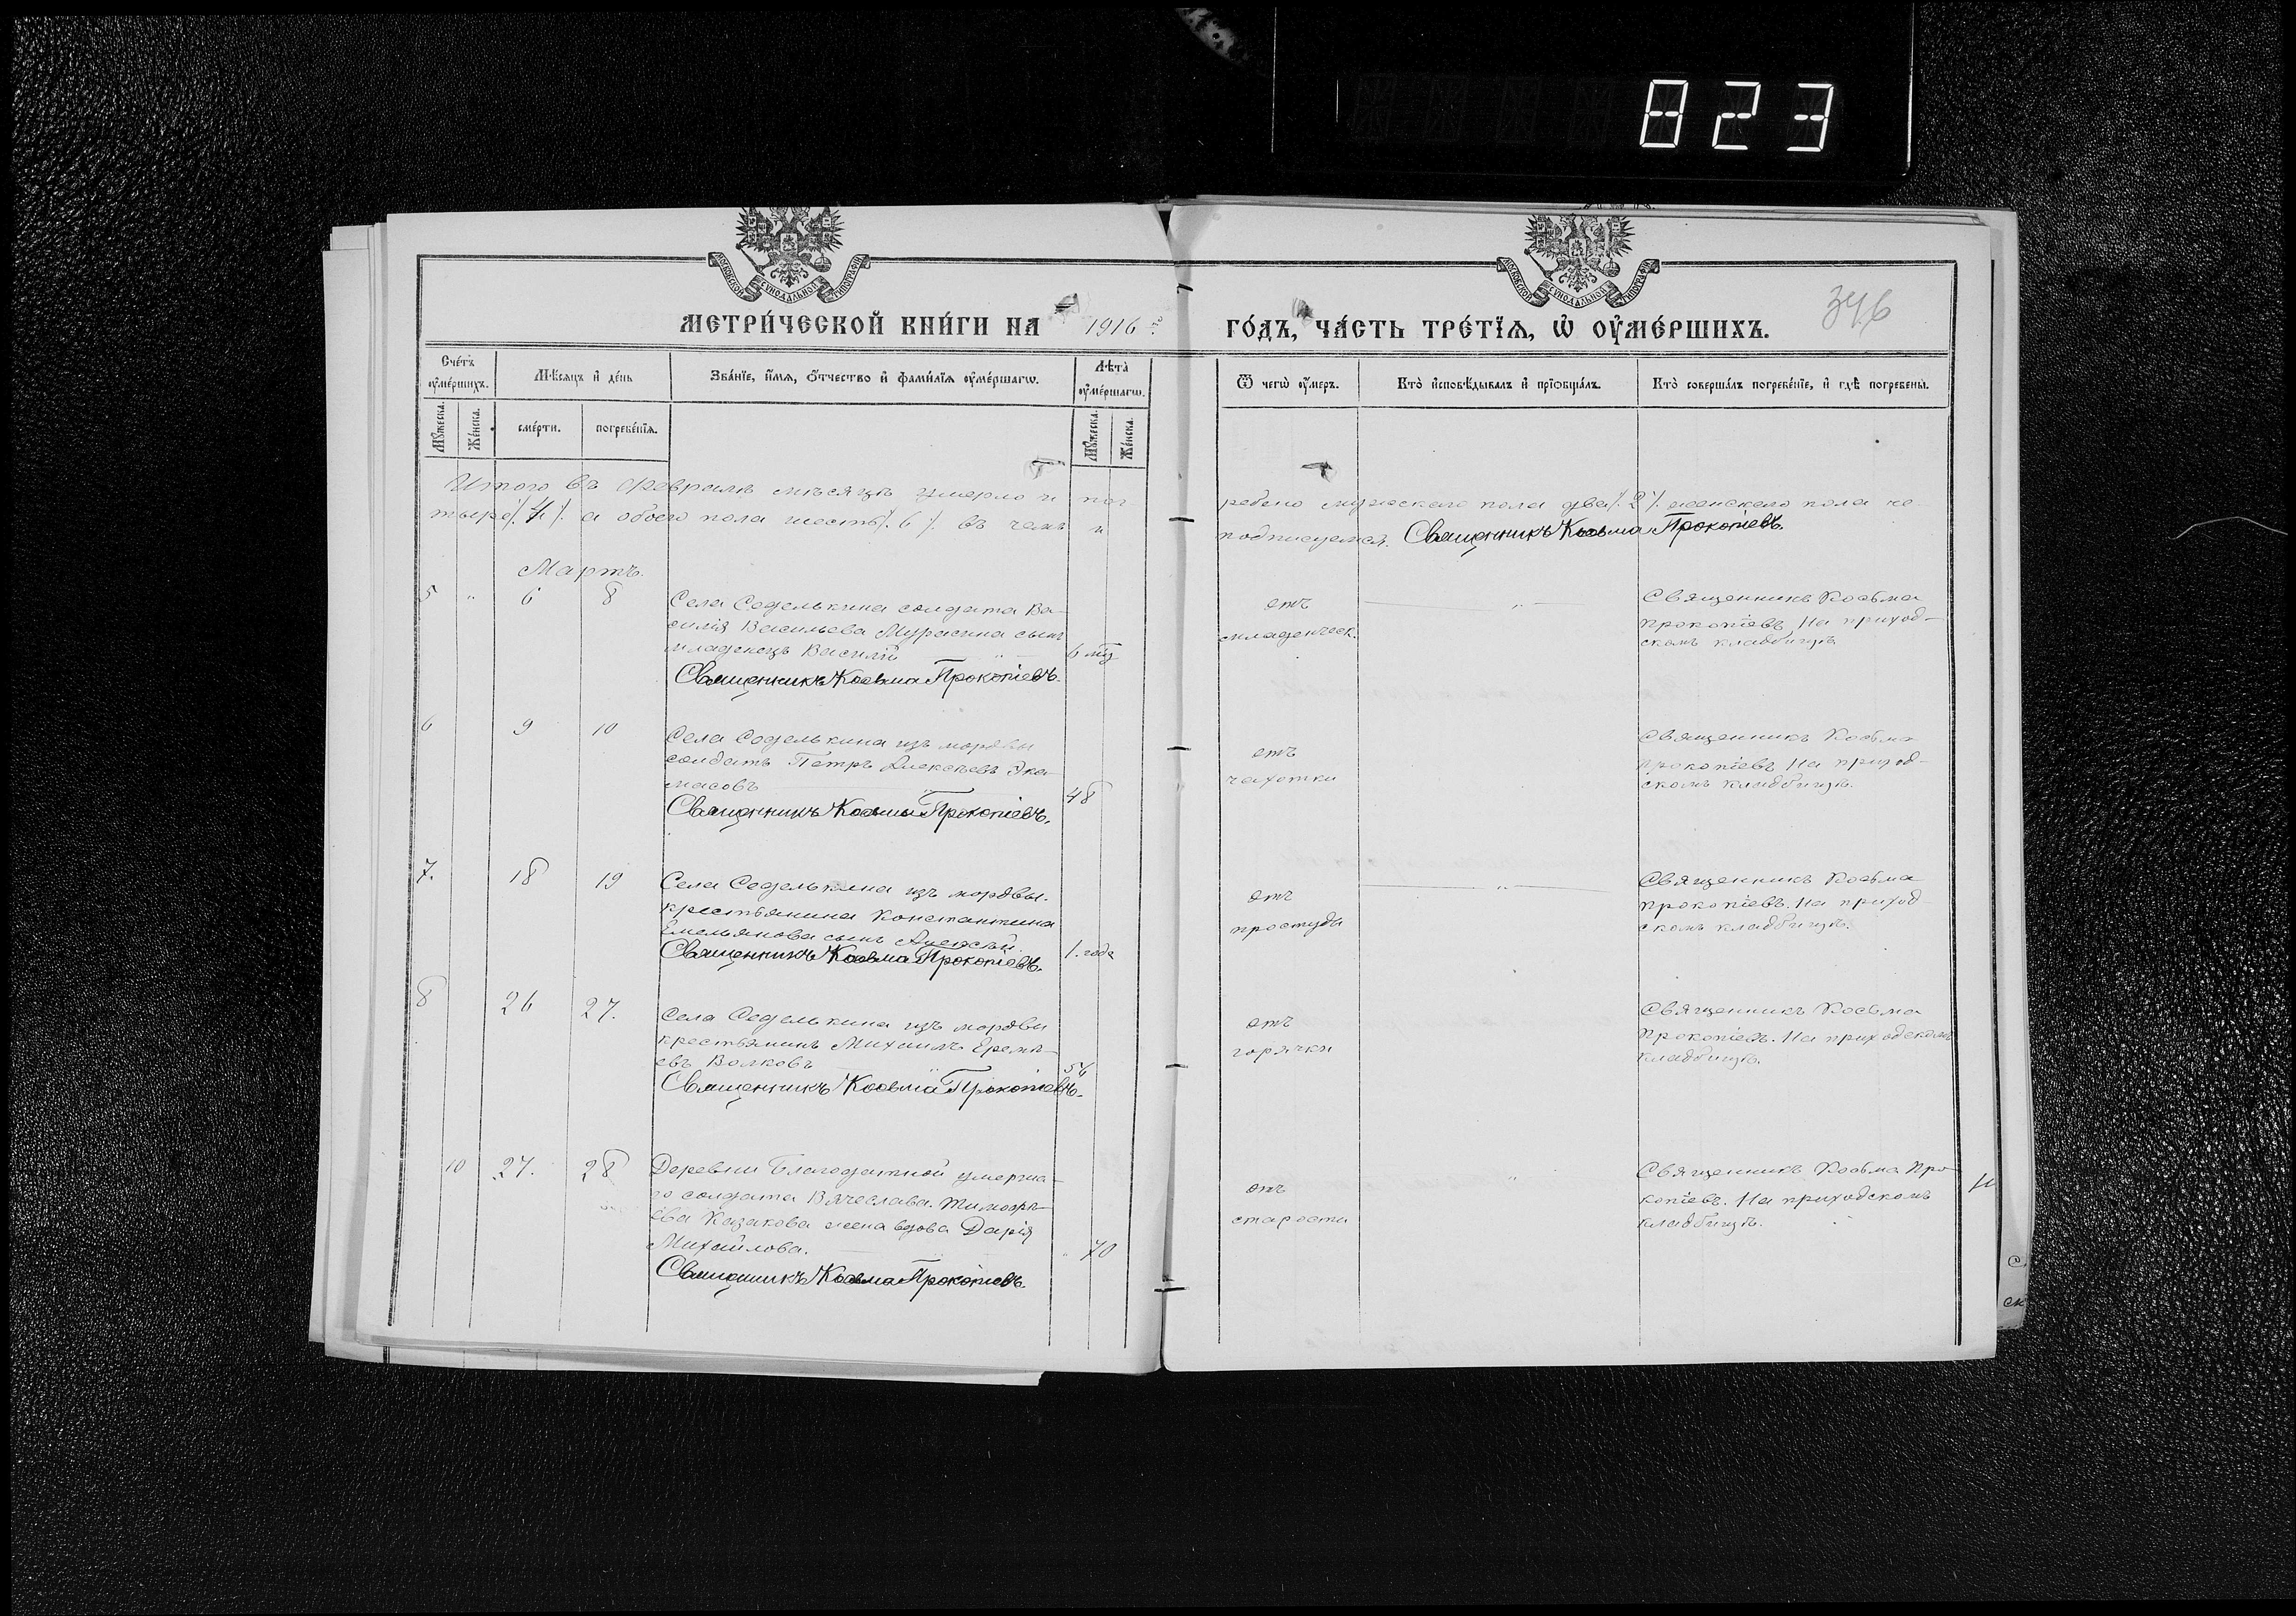 823
МОСКОВСКОЙ СУНОДАЛЬНОЙ ТИПОГРАФІИ
МОСКОВСКОЙ СУНОДАЛЬНОЙ ТИПОГРАФІИ
МЕТРИ́ЧЕСКОЙ КНИ́ГИ НА 1916 ГО́ДЪ, ЧА́СТЬ ТРЕ́ТЇѦ, Ѡ҆ ОУ҆МЕ́РШИХЪ.
346
Сче́тъ оу҆ме́ршихъ.
Мѣ́сяцъ и҆ де́нь
Зва́нїе, и҆́мѧ, ѻ҆́тчество и҆ фами́лїѧ оу҆ме́ршагѡ.
Лѣ́та оу҆ме́ршагѡ.
Ѿ чегѡ̀ оу҆́меръ.
Кто̀ и҆сповѣ́дывалъ и҆ прїѡбща́лъ.
Кто̀ соверша́лъ погребе́нїе, и҆ гдѣ̀ погребены̀.
Мꙋ́жеска.
Же́нска.
сме́рти.
погребе́нїѧ.
Мꙋ́жеска.
Же́нска.
Итого въ Февралѣ мѣсяцѣ умерло и пог
ребено мужескаго пола два /.2./ женскаго пола че
тыре /.4./. а обоего пола шесть /.6./. въ чемъ и
подписуемся. Священникъ Косьма Прокопіевъ.
Мартъ.
5 " 6 8
Села Седелькина солдата Ва-
силія Васильева Мурасина сынъ
младенецъ Василій
6 мц
Священникъ Косьма Прокопіевъ.
отъ
младенческ.
"
Священникъ Косьма
Прокопіевъ. На приход-
скомъ кладбищѣ
6 9 10
Села Седелькина изъ мордвы
солдатъ Петръ Алексѣевъ
масовъ
48
Священникъ Косьма Прокопіевъ.
отъ
чахотки
Священникъ Косьма
Прокопіевъ На приход-
скомъ кладбищѣ.
7. 18 19
Села Седелькина изъ мордвы.
крестьянина Константина
Емельянова сынъ Алексѣй.
1. года
Священникъ Косьма Прокопіевъ.
отъ
простуды
"
Священникъ Косьма
Прокопіевъ. На приход
скомъ кладбищѣ.
8 26 27.
Села Седелькина изъ мордвы
крестьянинъ Михаилъ Еремѣ-
евъ Волковъ
Священникъ Косьма Прокопіевъ.
отъ
горячки
Священникъ Косьма
Прокопіевъ. На приходскомъ
кладбищѣ.
10 27. 28
Деревни Благодатной умерша-
го солдата Вячеслава Тимоѳѣ-
ева Казакова жена вдова Дарія
Михайлова.
" 70
Священникъ Косьма Прокопіевъ.
отъ
старости
"
Священникъ Косьма Про-
копіевъ. На приходскомъ
кладбищѣ.